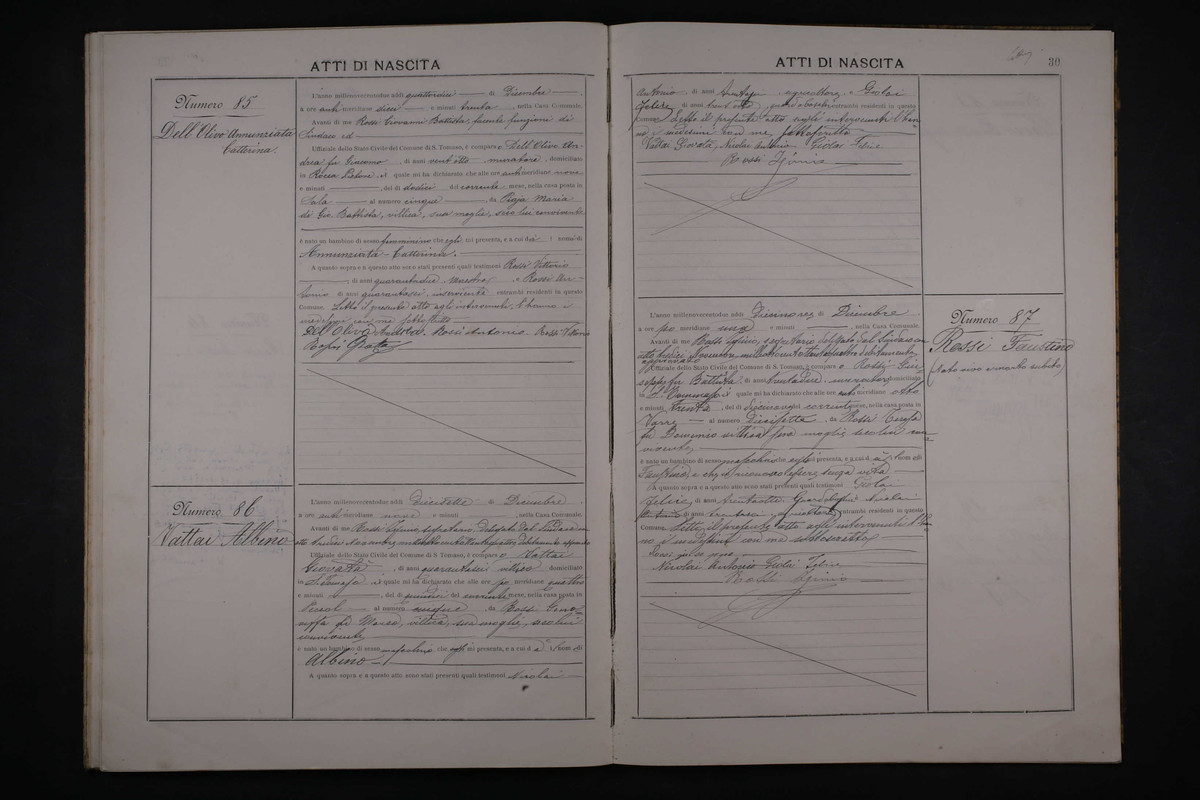 ATTI DI NASCITA
Numero 85
Dell'Olivo Annunziata
Catterina.
L'anno millenovecentodue addì quattordici di Dicembre
a ore anti meridiane dieci e minuti trenta, nella Casa Comunale.
Avanti di me Rossi Giovanni Battista, facente funzioni di
Sindaco ed
Uffiziale dello Stato Civile del Comune di S. Tomaso, è comparso Dell'Olivo An-
drea fu Giacomo, di anni ventotto muratore, domiciliato
in Rocca Pietore, il quale mi ha dichiarato che alle ore antimeridiane nove
e minuti, del dì dodici del corrente mese, nella casa posta in
Sala al numero cinque, da Piaja Maria
di Gio. Battista, villica, sua moglie, seco lui convivente
è nato un bambino di sesso femminino che egli mi presenta, e a cui dà i nomi di
Annunziata-Catterina.
A quanto sopra e a questo atto sono stati presenti quali testimoni Rossi Vittorio
di anni quarantadue, maestro e Rossi An-
tonio di anni quarantasei, inserviente, entrambi residenti in questo
Comune. Letto il presente atto agli intervenuti, l'hanno i
medesimi con me sottoscritto
Dell'Olivo Andrea. Rossi Antonio. Rossi Vittorio
Numero 86
Vattai Albino
L'anno millenovecentodue addì diciotto di Dicembre
a ore anti meridiane nove e minuti, nella Casa Comunale.
Avanti di me Rossi Iginio, segretario delegato dal Sindaco con
atto tredici Novembre
Uffiziale dello Stato Civile del Comune di S. Tomaso, è comparso Vattai
Giovatà, di anni quarantasei villico domiciliato
in S. Tomaso, il quale mi ha dichiarato che alle ore po meridiane quattro
e minuti, del dì quindici del corrente mese, nella casa posta in
Pecol al numero, da Rossi Geno-
veffa fu Marco, villica, sua moglie, seco lui
convivente
è nato un bambino di sesso mascolino che egli mi presenta, e a cui dà il nome di
Albino
A quanto sopra e a questo atto sono stati presenti quali testimoni Nicolai
ATTI DI NASCITA
30
Antonio di anni, agricoltore, e Giolai
Felice, di anni, entrambi residenti in questo
Comune. Letto il presente atto agli intervenuti l'han-
no i medesimi con me sottoscritto
Vattai Giovatà, Nicolai Antonio Giolai Felice
Rossi Iginio
Numero 87
Rossi Faustino
(Nato vivo e morto subito)
L'anno millenovecentodue addì Diecinove di Dicembre
a ore po meridiane una e minuti, nella Casa Comunale.
Avanti di me Rossi Iginio, segretario delegato dal Sindaco con
atto tredici Novembre
approvato
Uffiziale dello Stato Civile del Comune di S. Tomaso, è comparso Rossi Giu-
seppe fu Battista, di anni trentadue, domiciliato
in S. Tomaso, il quale mi ha dichiarato che alle ore antimeridiane otto
e minuti trenta, del dì diecinove del corrente mese, nella casa posta in
al numero dicisette, da Rossi Teresa
fu Domenico villica sua moglie seco lui con-
vivente
è nato un bambino di sesso mascolino che egli mi presenta, e a cui dà il nome di
Faustino, e che senza vita
A quanto sopra e a questo atto sono stati presenti quali testimoni Giolai
Felice, di anni trentotto, e Nicolai
Antonio di anni, entrambi residenti in questo
Comune. Letto il presente atto agli intervenuti l'han-
no i medesimi con me sottoscritto
Nicolai Antonio Giolai Felice
Rossi Iginio